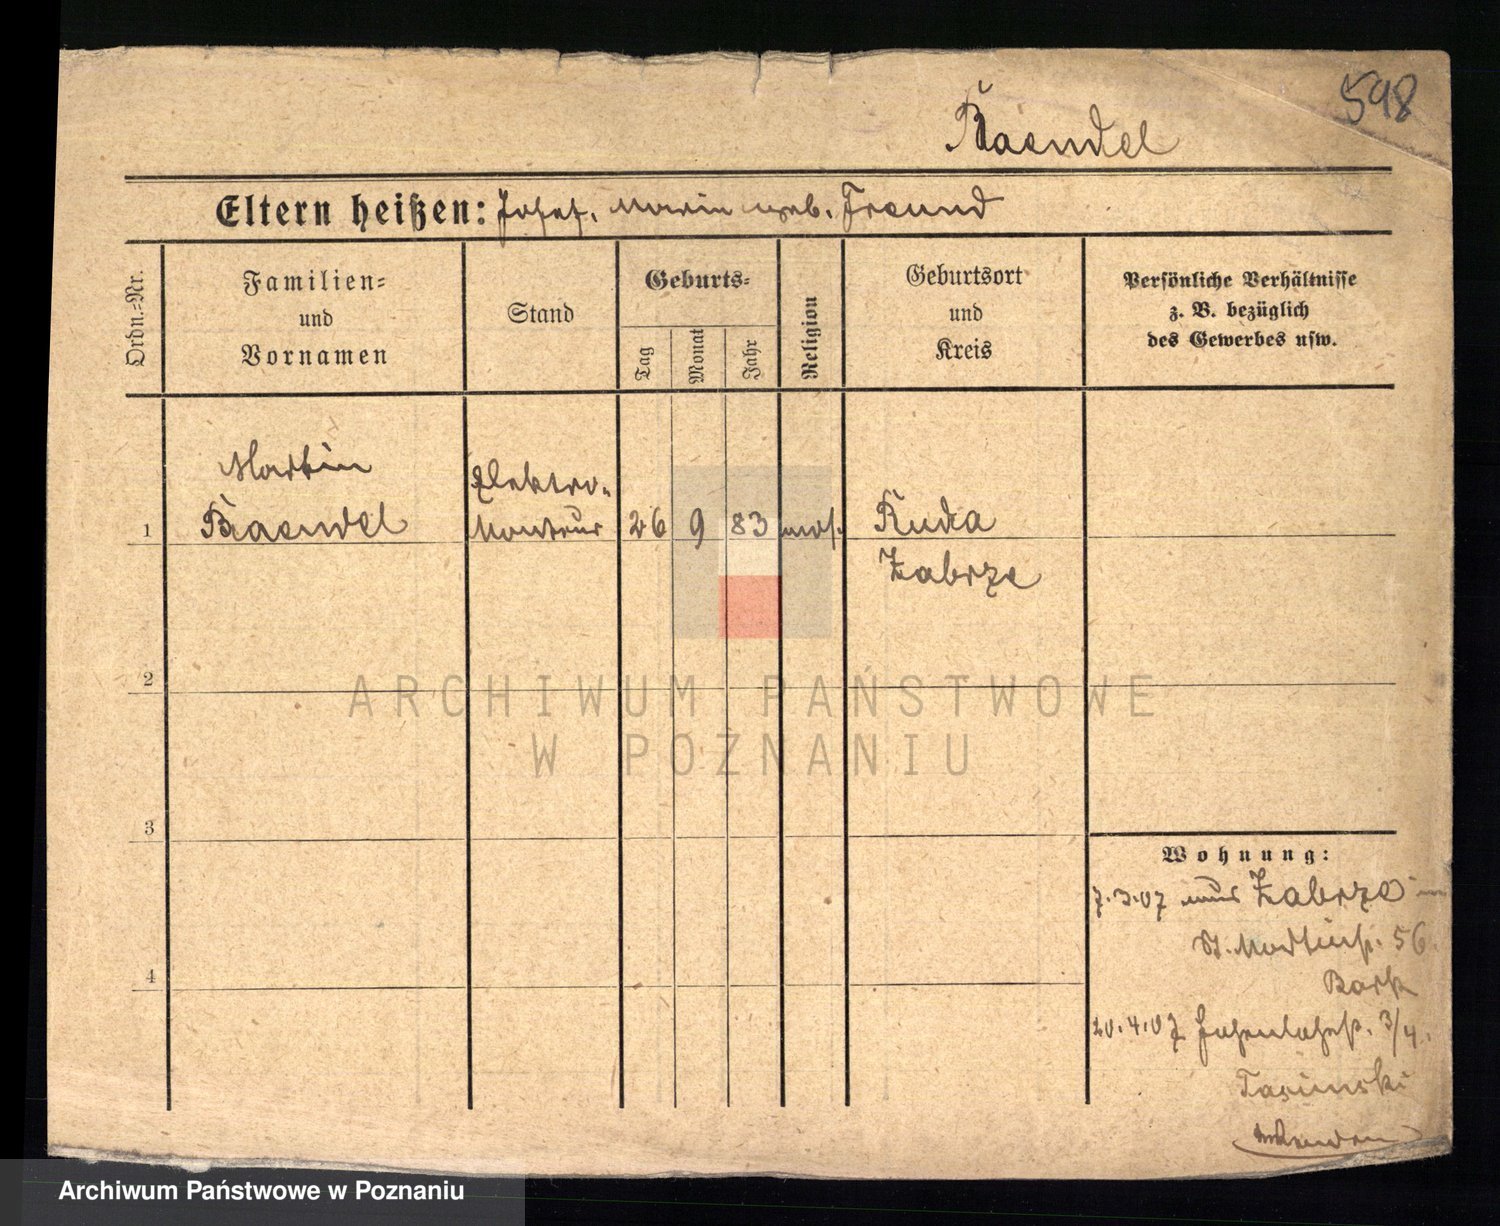 598
Baendel
Eltern heißen: Josef, Marie geb. Freund
Ordn.-Nr.
Familien-
und
Vornamen
Stand
Geburts-
Tag
Monat
Jahr
Religion
Geburtsort
und
Kreis
Persönliche Verhältnisse
z. B. bezüglich
des Gewerbes usw.
Martin
Elektro-
1 Baendel Monteur 26 9 83 mos. Ruda
Zabrze
2
ARCHIWUM PAŃSTWOWE
W POZNANIU
3
Wohnung:
7.3.07 aus Zabrze
St. Martinstr. 56
4
20.4.07 Hohenlohestr. 3/4.
Archiwum Państwowe w Poznaniu